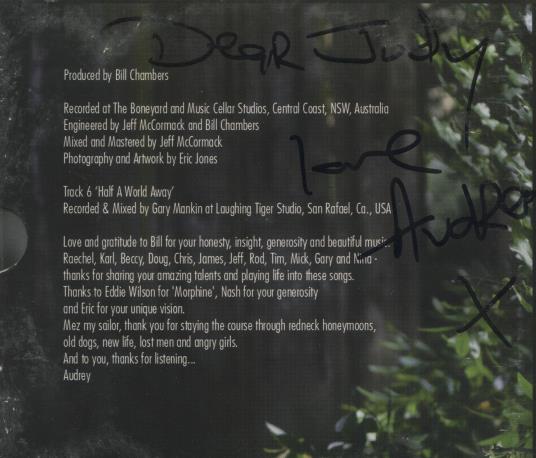 Dear Judy
Produced by Bill Chambers
Recorded at The Boneyard and Music Cellar Studios, Central Coast, NSW, Australia
Engineered by Jeff McCormack and Bill Chambers
Mixed and Mastered by Jeff McCormack
Photography and Artwork by Eric Jones
love
Track 6 'Half A World Away'
Recorded & Mixed by Gary Mankin at Laughing Tiger Studio, San Rafael, Ca., USA
Audrey
Love and gratitude to Bill for your honesty, insight, generosity and beautiful music.
Raechel, Karl, Beccy, Doug, Chris, James, Jeff, Rod, Tim, Mick, Gary and Nina -
thanks for sharing your amazing talents and playing life into these songs.
Thanks to Eddie Wilson for 'Morphine', Nash for your generosity
and Eric for your unique vision.
X
Mez my sailor, thank you for staying the course through redneck honeymoons,
old dogs, new life, lost men and angry girls.
And to you, thanks for listening...
Audrey